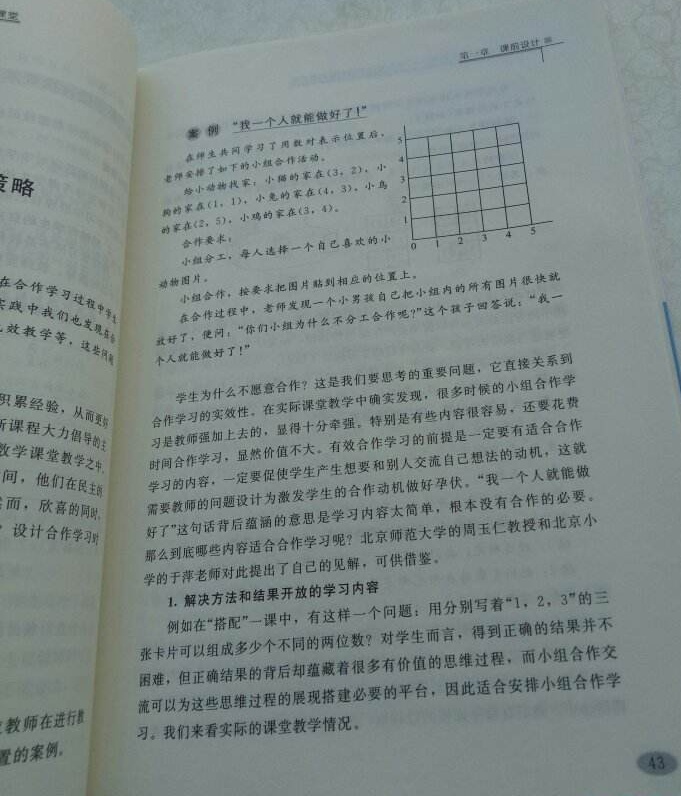 课堂
策略
在合作学习过程中学生
实践中我们也发现在合
效教学等，这些问题
积累经验，从而更好
新课程大力倡导的主
数学课堂教学之中，
间，他们在民主的
然而，欣喜的同时，
？设计合作学习时
教师在进行教
置的案例。
第一章 课前设计
案例 “我一个人就能做好了！”
在师生共同学习了用数对表示位置后，
老师安排了如下的小组合作活动。
给小动物找家：小猫的家在(3，2)，小
狗的家在(1，1)，小兔的家在(4，3)，小鸟
的家在(2，5)，小鸡的家在(3，4)。
合作要求：
小组分工，每人选择一个自己喜欢的小
动物图片。
5
4
3
2
1
0 1 2 3 4 5
小组合作，按要求把图片贴到相应的位置上。
在合作过程中，老师发现一个小男孩自己把小组内的所有图片很快就
放好了，便问：“你们小组为什么不分工合作呢？”这个孩子回答说：“我一
个人就能做好了！”
学生为什么不愿意合作？这是我们要思考的重要问题，它直接关系到
合作学习的实效性。在实际课堂教学中确实发现，很多时候的小组合作学
习是教师强加上去的，显得十分牵强。特别是有些内容很容易，还要花费
时间合作学习，显然价值不大。有效合作学习的前提是一定要有适合合作
学习的内容，一定要促使学生产生想要和别人交流自己想法的动机，这就
需要教师的问题设计为激发学生的合作动机做好孕伏。“我一个人就能做
好了”这句话背后蕴涵的意思是学习内容太简单，根本没有合作的必要。
那么到底哪些内容适合合作学习呢？北京师范大学的周玉仁教授和北京小
学的于萍老师对此提出了自己的见解，可供借鉴。
1. 解决方法和结果开放的学习内容
例如在“搭配”一课中，有这样一个问题：用分别写着“1，2，3”的三
张卡片可以组成多少个不同的两位数？对学生而言，得到正确的结果并不
困难，但正确结果的背后却蕴藏着很多有价值的思维过程，而小组合作交
流可以为这些思维过程的展现搭建必要的平台，因此适合安排小组合作学
习。我们来看实际的课堂教学情况。
43